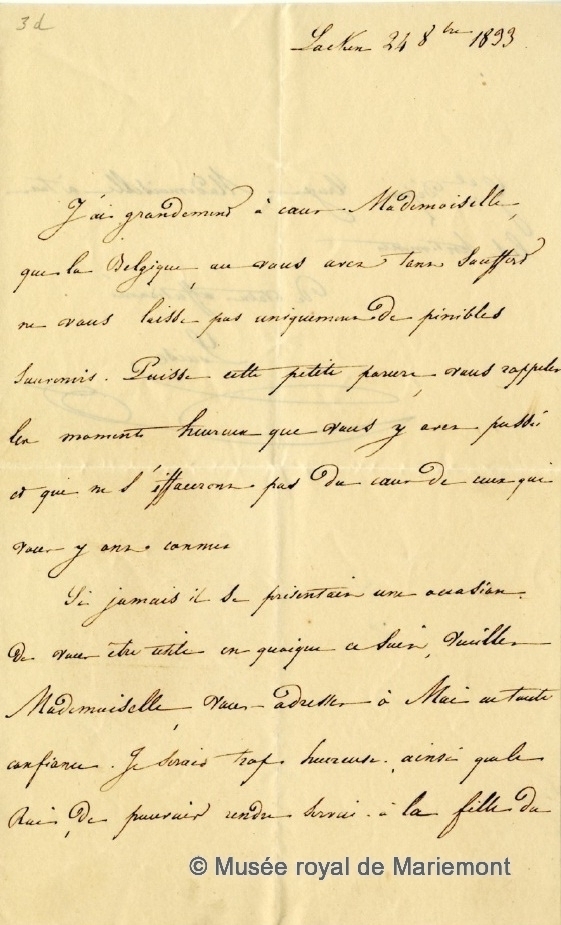 3d
Laeken 24 8bre 1833
J'ai grandement à cœur Mademoiselle,
que la Belgique, où vous avez tant souffert
ne vous laisse pas uniquement de pénibles
souvenirs. Puisse cette petite parure, vous rappeler
les moments heureux que vous y avez passés
et qui ne s'éffaceront pas du cœur de ceux qui
vous y ont connue
Si jamais il se présentait une occasion
de vous être utile en quoique ce soit, veuillez
Mademoiselle, vous adresser à Moi en toute
confiance. Je serais trop heureuse ainsi que le
Roi, de pouvoir rendre service à la fille du
© Musée royal de Mariemont